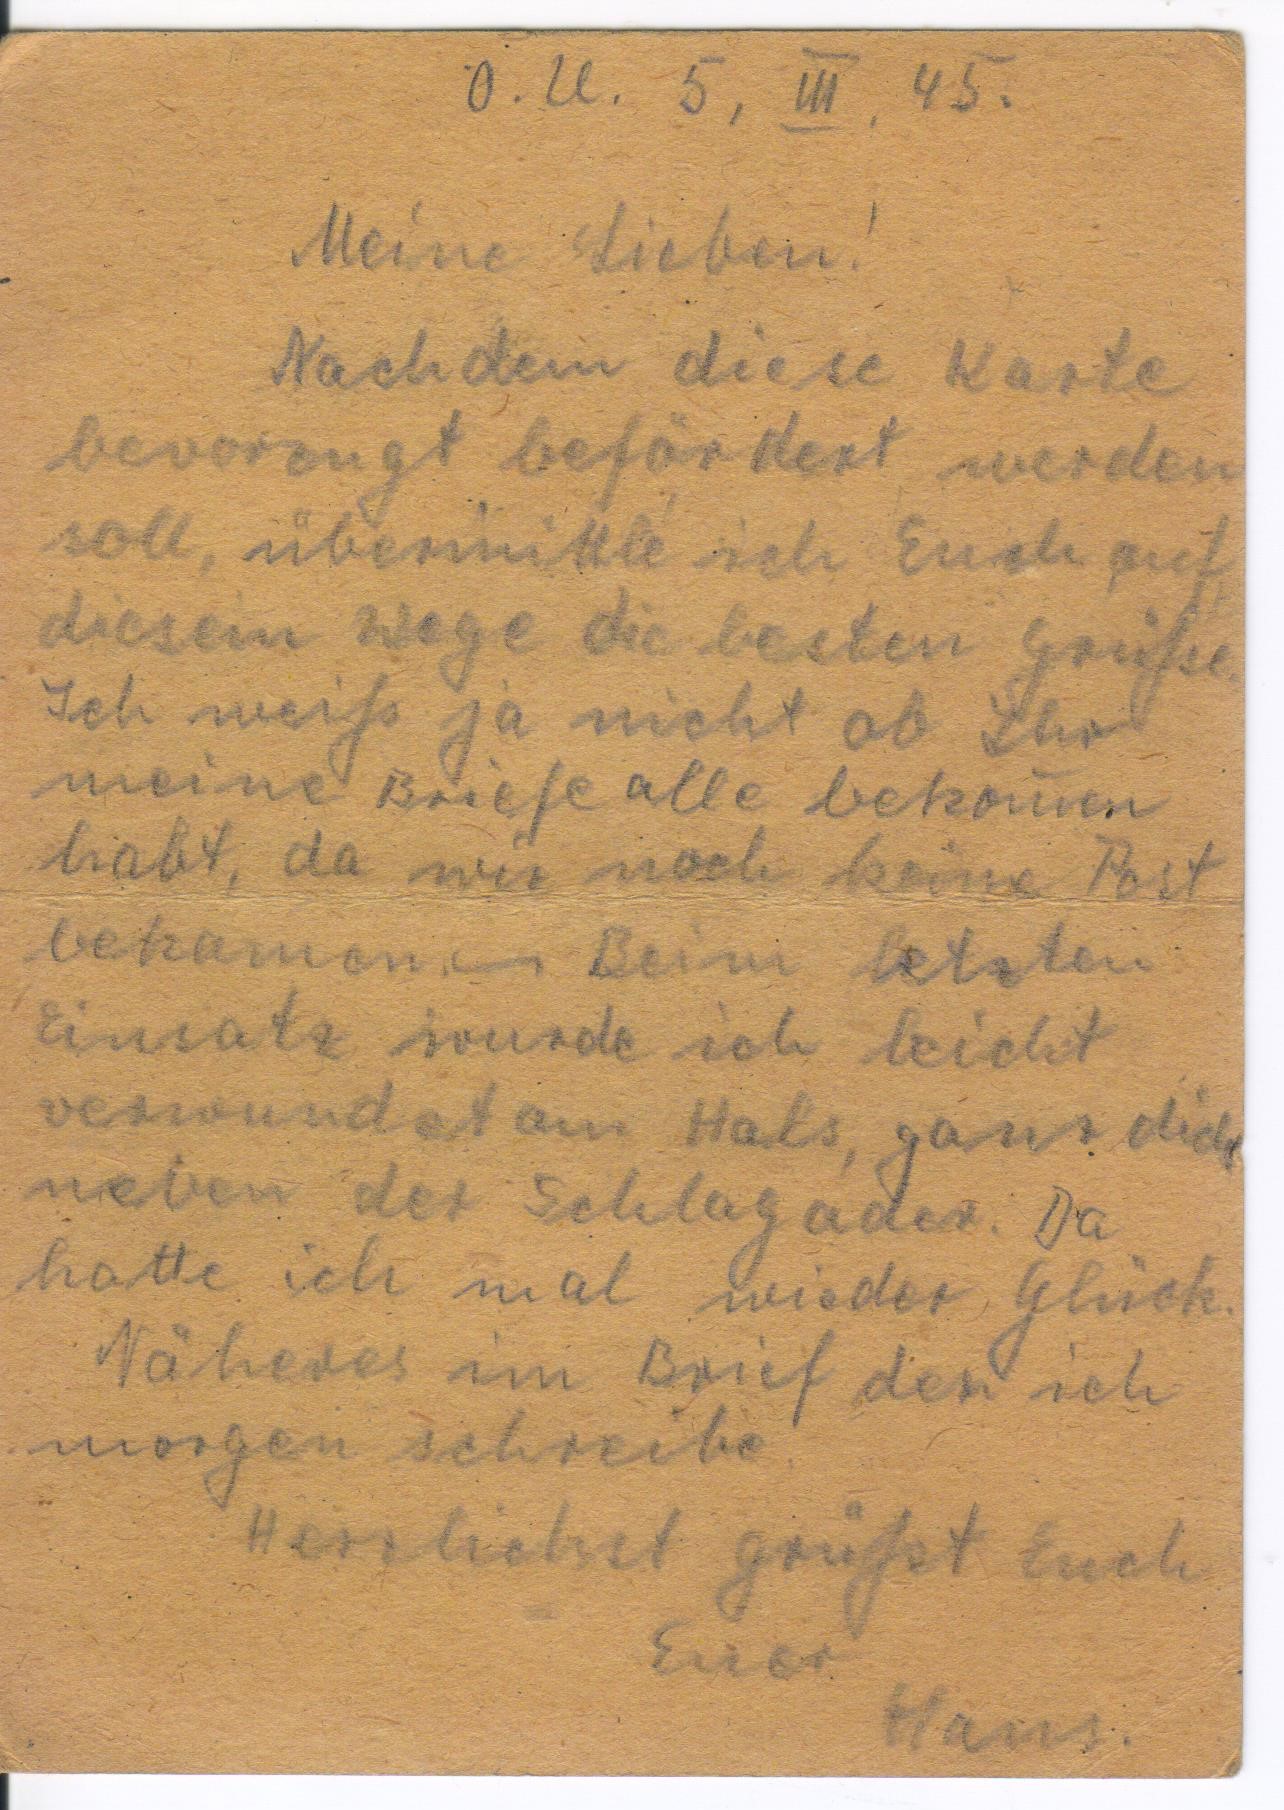 O.U. 5, III. 45.
Meine Lieben!
Nachdem diese Karte
bevorzugt befördert werden
soll, übermittle ich Euch auf
diesem Wege die besten Grüße.
Ich weiß ja nicht ob Ihr
meine Briefe alle bekom̄en
habt, da wir noch keine Post
bekamen. — Beim letzten
Einsatz wurde ich leicht
verwundet am Hals, ganz dicht
neben der Schlagader. Da
hatte ich mal wieder Glück.
Näheres im Brief den ich
morgen schreibe.
Herzlichst grüßt Euch
Euer
Hans.